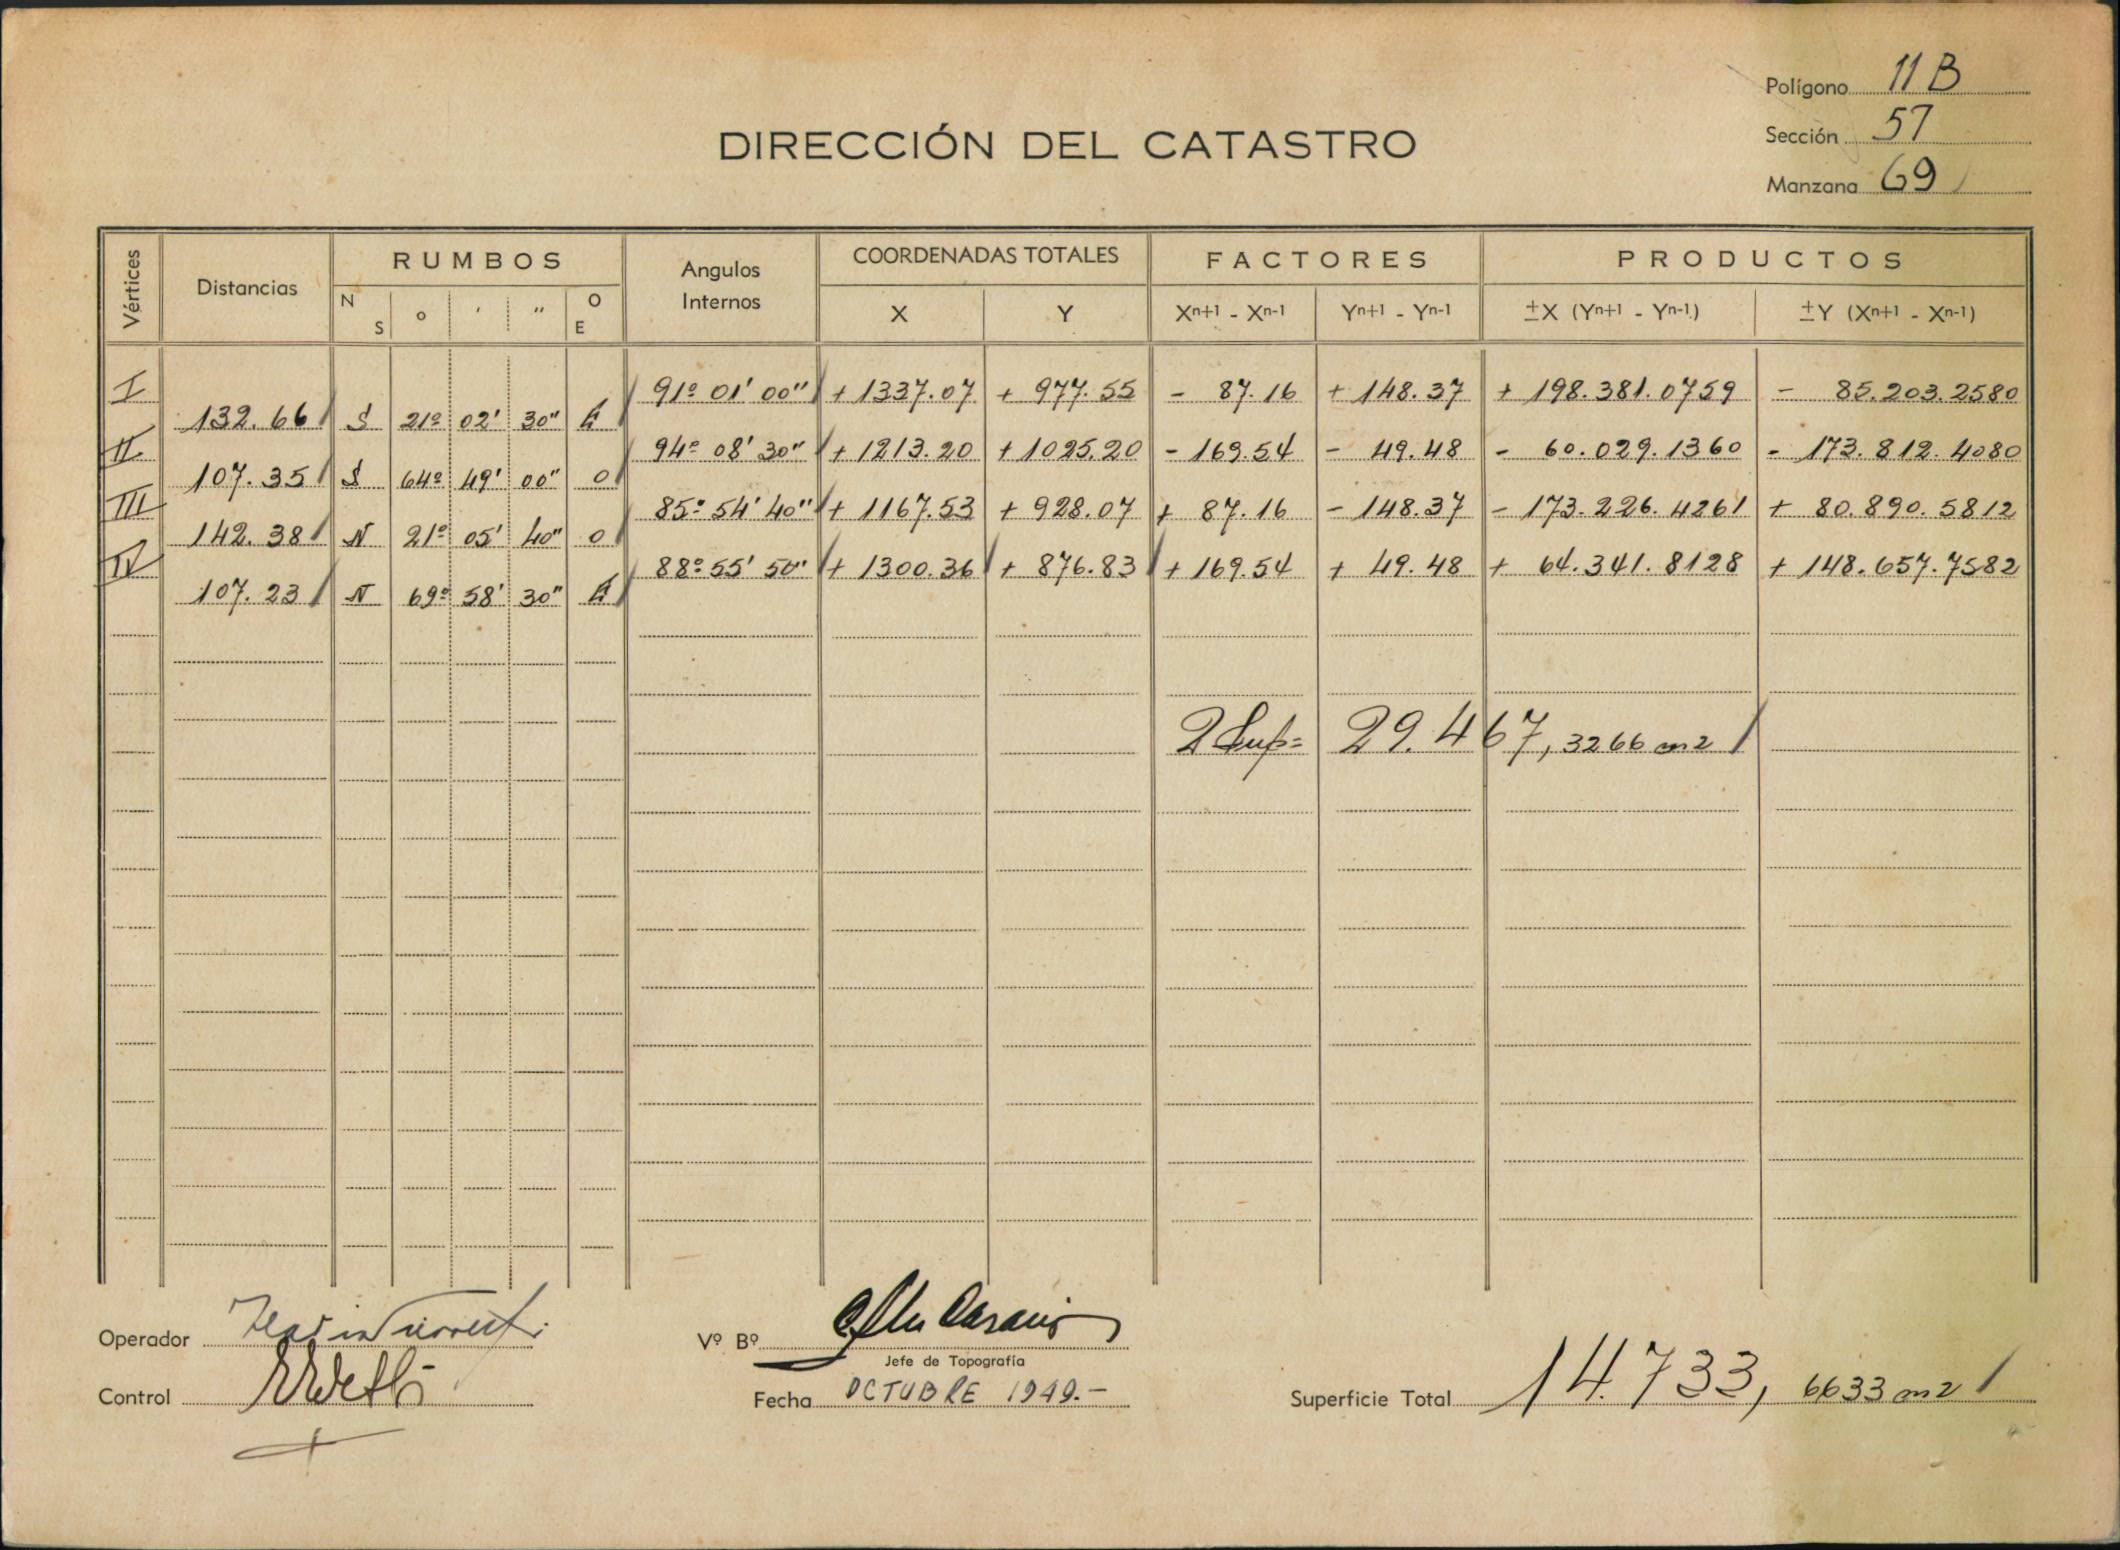 Polígono 11 B
DIRECCIÓN DEL CATASTRO
Sección 57
Manzana 69
Vértices
Distancias
RUMBOS
N S
o
′
″
O E
Angulos Internos
COORDENADAS TOTALES
X
Y
FACTORES
Xn+1 - Xn-1
Yn+1 - Yn-1
PRODUCTOS
±X (Yn+1 - Yn-1)
±Y (Xn+1 - Xn-1)
I 91º 01' 00" + 1337.07 + 977.55 - 87.16 + 148.37 + 198.381.0759 - 85.203.2580
132.66 S 21º 02' 30" E
II 94º 08' 30" + 1213.20 + 1025.20 - 169.54 - 49.48 - 60.029.1360 - 173.812.4080
107.35 S 64º 49' 00" O
III 85º 54' 40" + 1167.53 + 928.07 + 87.16 - 148.37 - 173.226.4261 + 80.890.5812
142.38 N 21º 05' 40" O
IV 88º 55' 50" + 1300.36 + 876.83 + 169.54 + 49.48 + 64.341.8128 + 148.657.7582
107.23 N 69º 58' 30" E
2 Sup= 29.467,3266 m2
Operador
Vº Bº
Jefe de Topografía
Control
Fecha OCTUBRE 1949.-
Superficie Total 14.733, 6633 m2